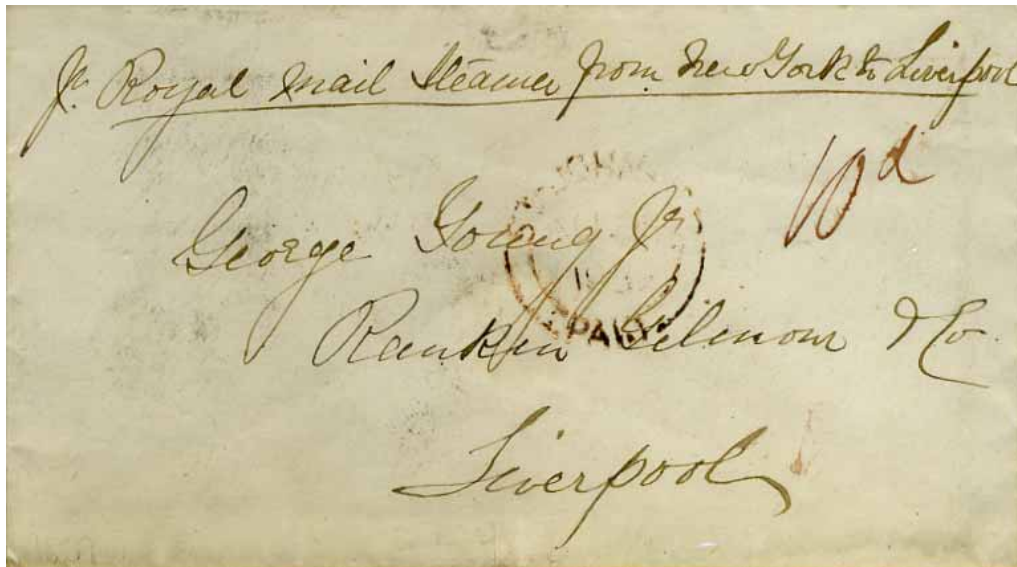 Pr. Royal Mail Steamer from New York to Liverpool
10d
George Young Jr
Rankin Gilmour & Co.
Liverpool
PAID